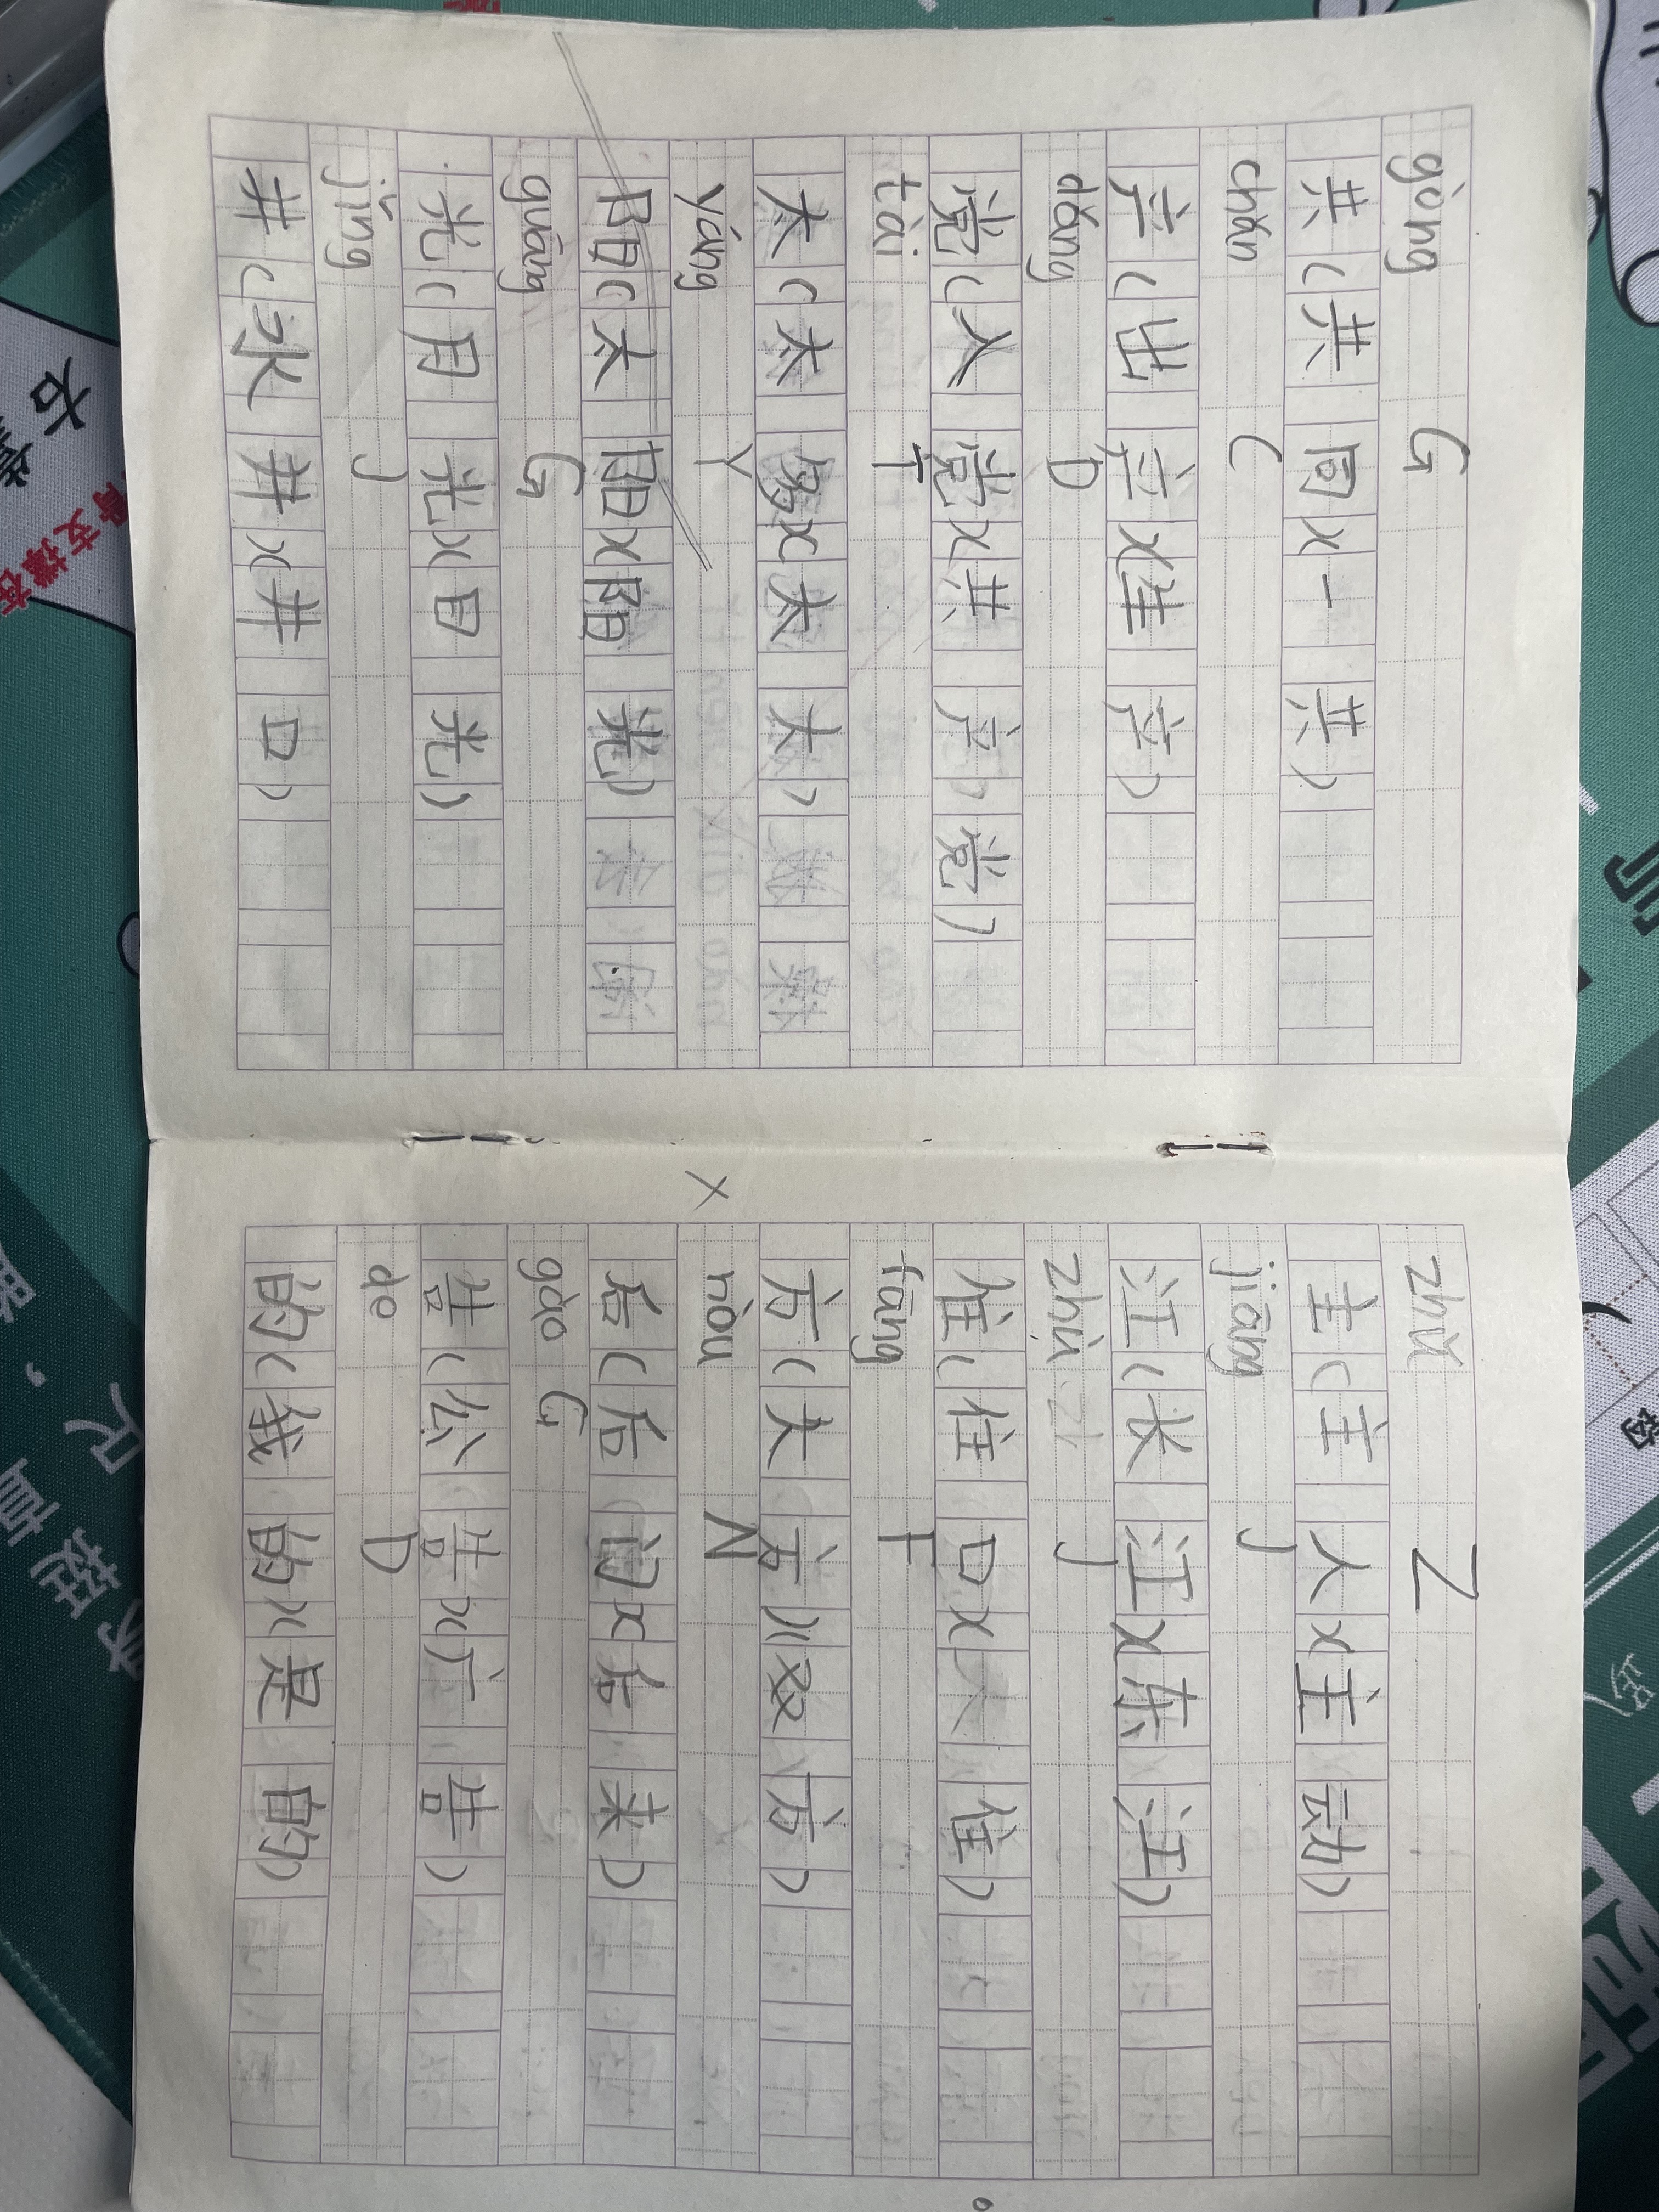 gòng G
共(共同)(一共)
chǎn C
产(出产)(生产)
dǎng D
党(人党)(共产党)
tài T
太(太多)(太大)
yáng Y
阳(太阳)(阳光)
guāng G
光(月光)(日光)
jǐng J
井(水井)(井口)
zhǔ Z
主(主人)(主动)
jiāng J
江(长江)(东江)
zhù J
住(住口)(人住)
fāng F
方(大方)(双方)
hòu N
后(后门)(后来)
gào G
告(公告)(广告)
de D
的(我的)(是的)
右